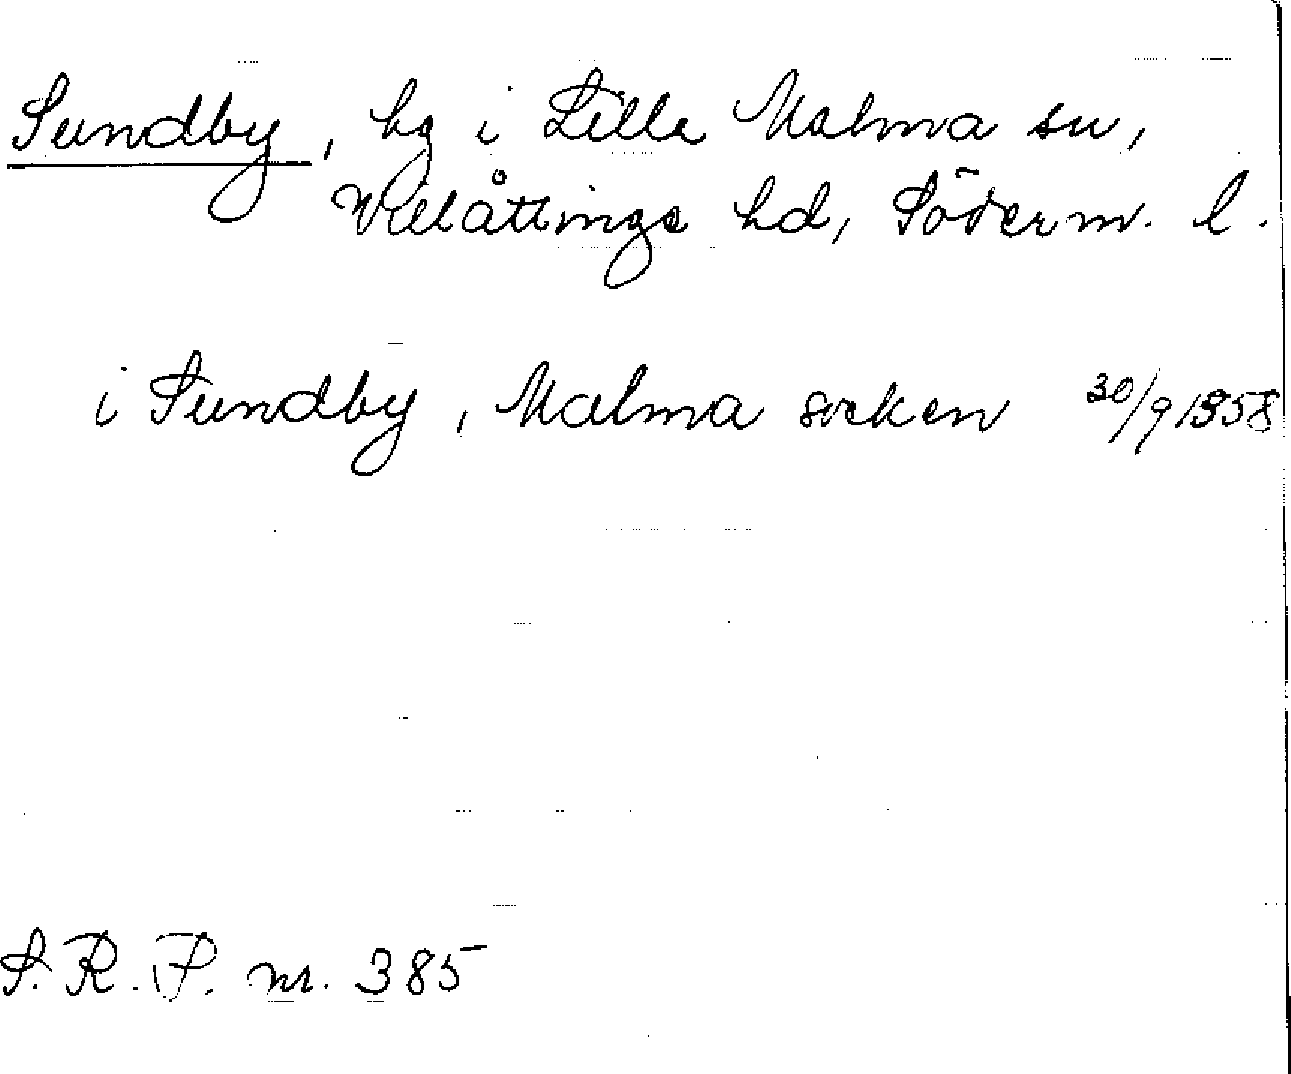 Sundby, hg i Lilla Malma sn,
Villåttinge hd, Söderm. l.
i Sundby, Malma socken 30/9 1358
S. R. P. nr. 385